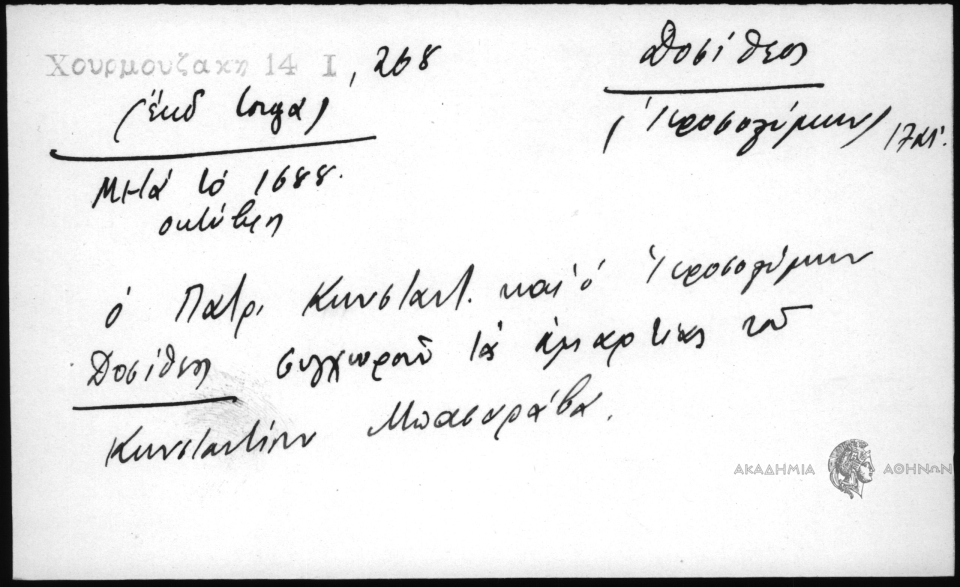 Χουρμουζακη 14 I, 268
(ἐκδ Ιοργα)
Δοσίθεος
(Ἱεροσολύμων) 17αι.
Μετά τό 1688.
οκτώβρη
ὁ Πατρ. Κωνσταντ. καί ὁ Ἱεροσολύμων
Δοσίθεος συγχωροῦν τάς ἁμαρτίας τοῦ
Κωνσταντίνου Μπασαράβα.
ΑΚΑΔΗΜΙΑ ΑΘΗΝΩΝ